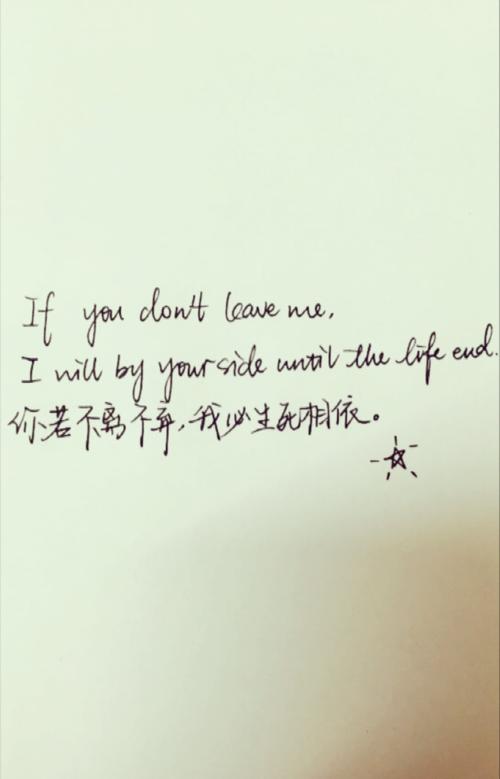 If you don't leave me,
I will by your side until the life end.
你若不离不弃,我必生死相依。